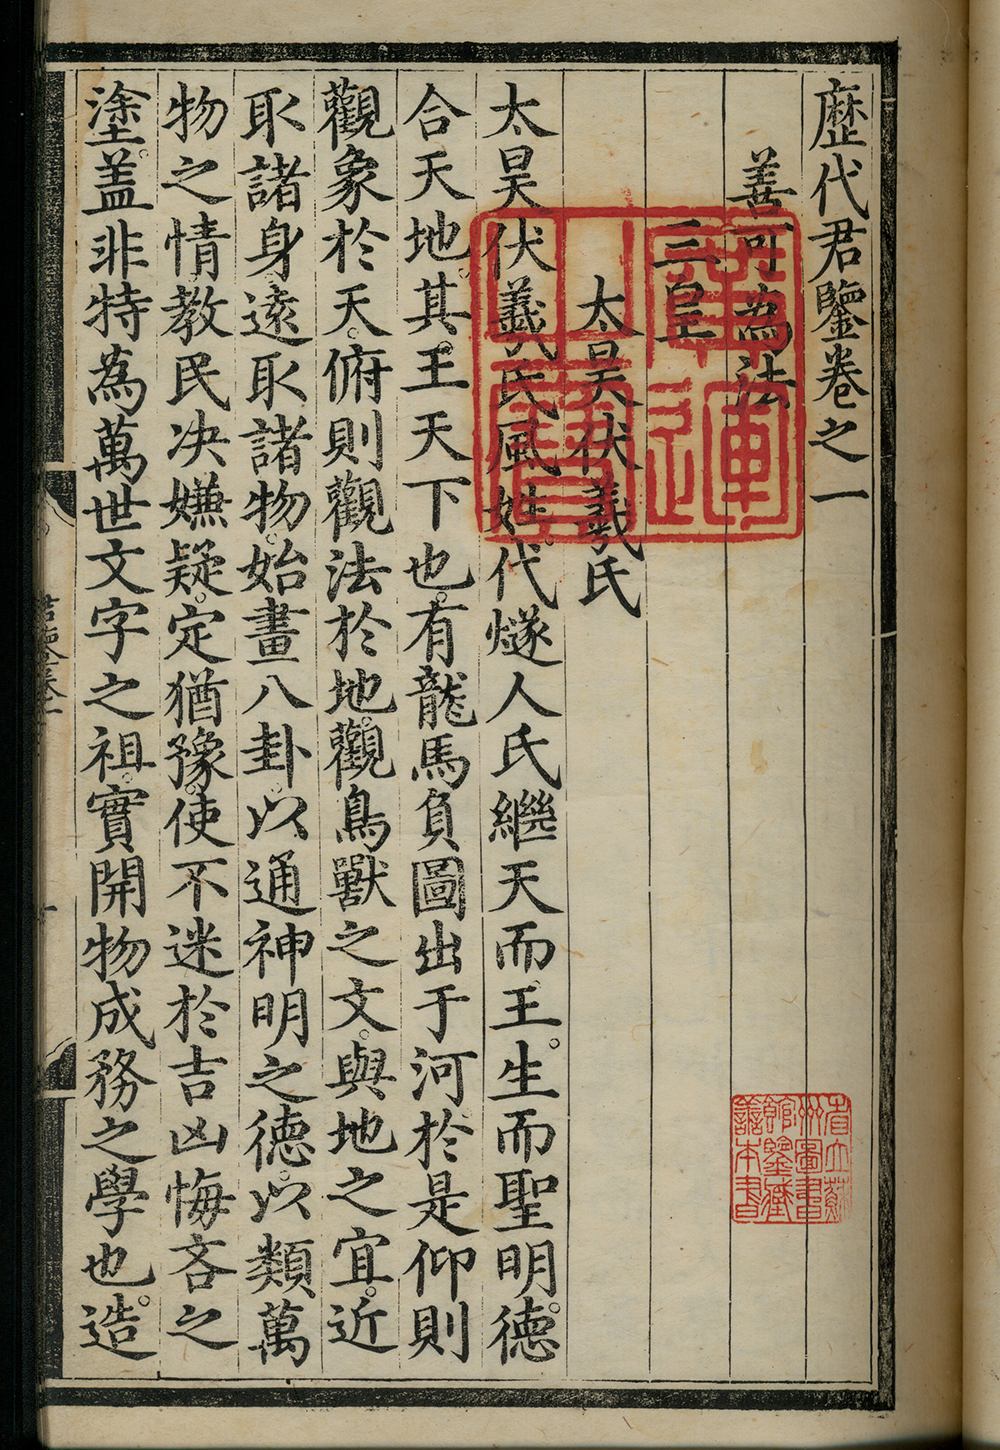 歷代君鑒卷之一
善可為法
三皇
太昊伏羲氏
太昊伏羲氏風姓。代燧人氏繼天而王。生而聖明。德
合天地。其王天下也。有龍馬負圖出于河。於是仰則
觀象於天。俯則觀法於地。觀鳥獸之文。與地之宜。近
取諸身。遠取諸物。始畫八卦。以通神明之德。以類萬
物之情。教民决嫌疑。定猶豫。使不迷於吉凶悔吝之
塗。盖非特為萬世文字之祖。實開物成務之學也。造
廣運
之寶
省立蘇
州圖書
館鑒藏
善本書